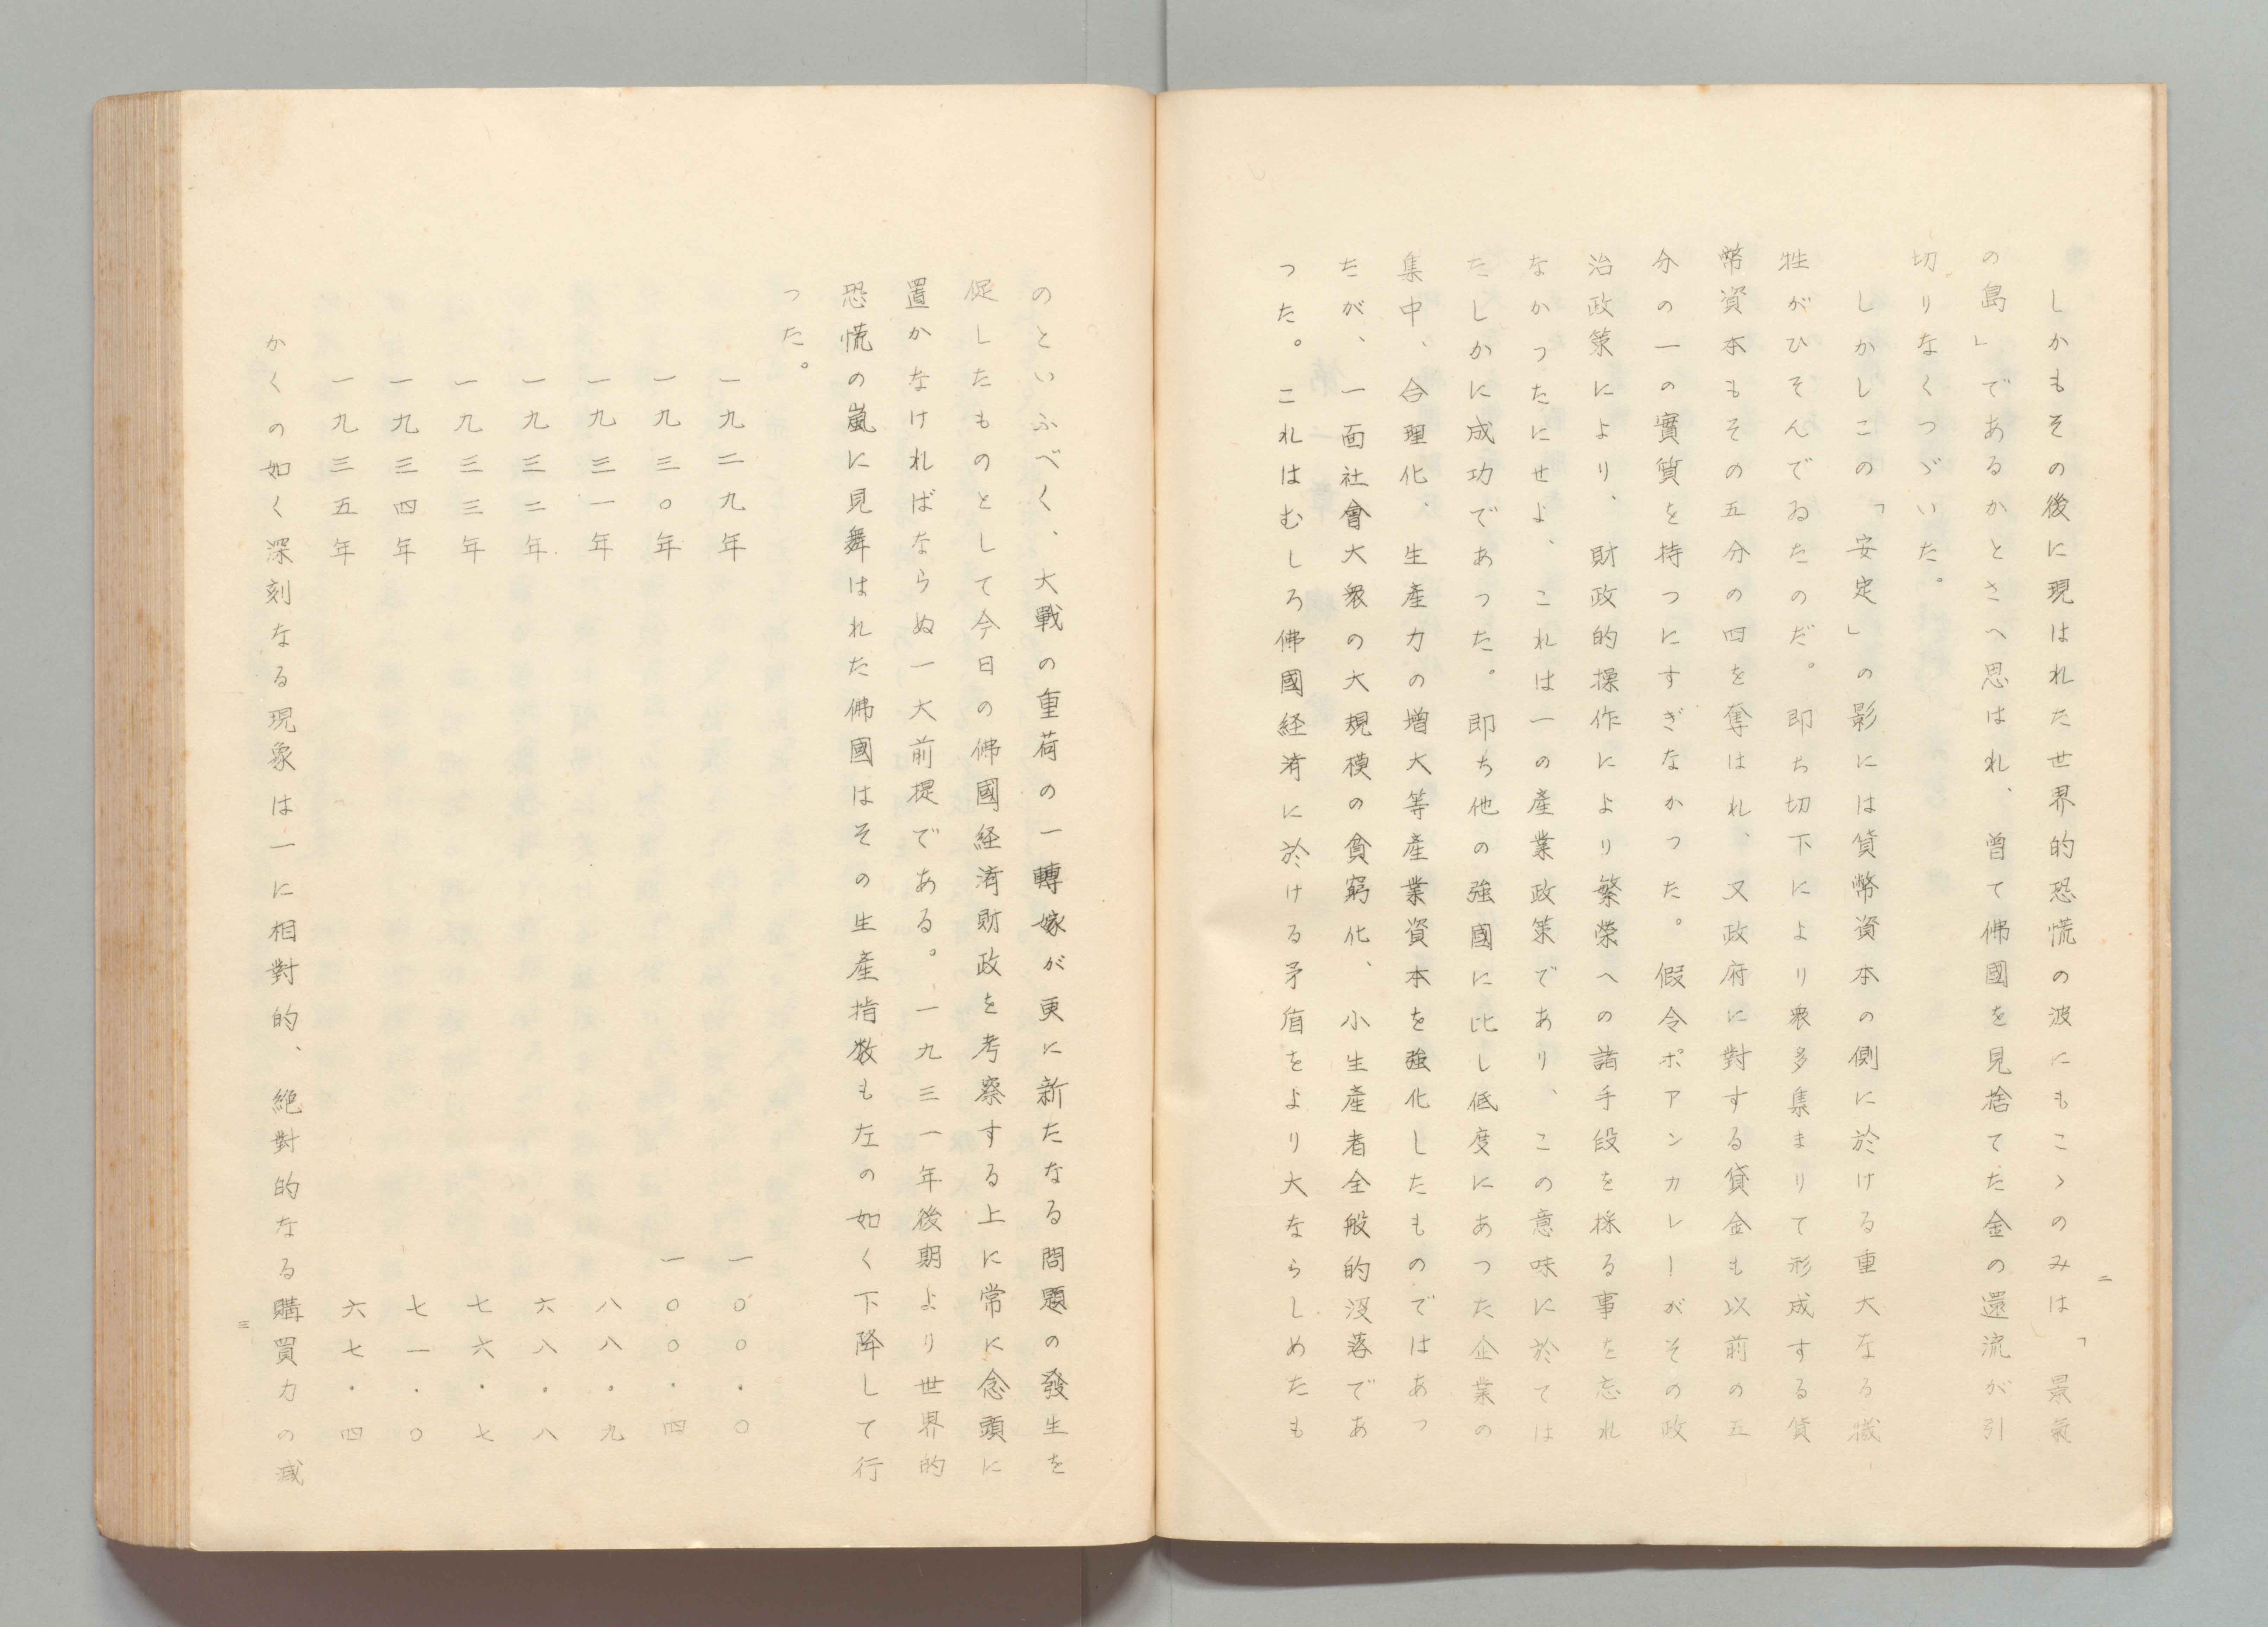 二
しかもその後に現はれた世界的恐慌の波にもこゝのみは「景氣
の島」であるかとさへ思はれ、曾て佛國を見捨てた金の還流が引
切りなくつゞいた。
しかしこの「安定」の影には貨幣資本の側に於ける重大なる犠
牲がひそんでゐたのだ。即ち切下により衆多集まりて形成する貨
幣資本もその五分の四を奪はれ、又政府に對する貸金も以前の五
分の一の實質を持つにすぎなかつた。假令ポアンカレーがその政
治政策により、財政的操作により繁榮への諸手段を採る事を忘れ
なかつたにせよ、これは一の產業政策であり、この意味に於ては
たしかに成功であつた。即ち他の強國に比し低度にあつた企業の
集中、合理化、生產力の增大等產業資本を強化したものではあつ
たが、一面社會大衆の大規模の貧窮化、小生產者全般的沒落であ
つた。これはむしろ佛國経済に於ける矛盾をより大ならしめたも
のといふべく、大戰の重荷の一轉嫁が更に新たなる問題の發生を
促したものとして今日の佛國経済財政を考察する上に常に念頭に
置かなければならぬ一大前提である。一九三一年後期より世界的
恐慌の嵐に見舞はれた佛國はその生產指数も左の如く下降して行
つた。
一九二九年　一〇〇・〇
一九三〇年　一〇〇・四
一九三一年　八八・九
一九三二年　六八・八
一九三三年　七六・七
一九三四年　七一・〇
一九三五年　六七・四
かくの如く深刻なる現象は一に相對的、絶對的なる購買力の減
三